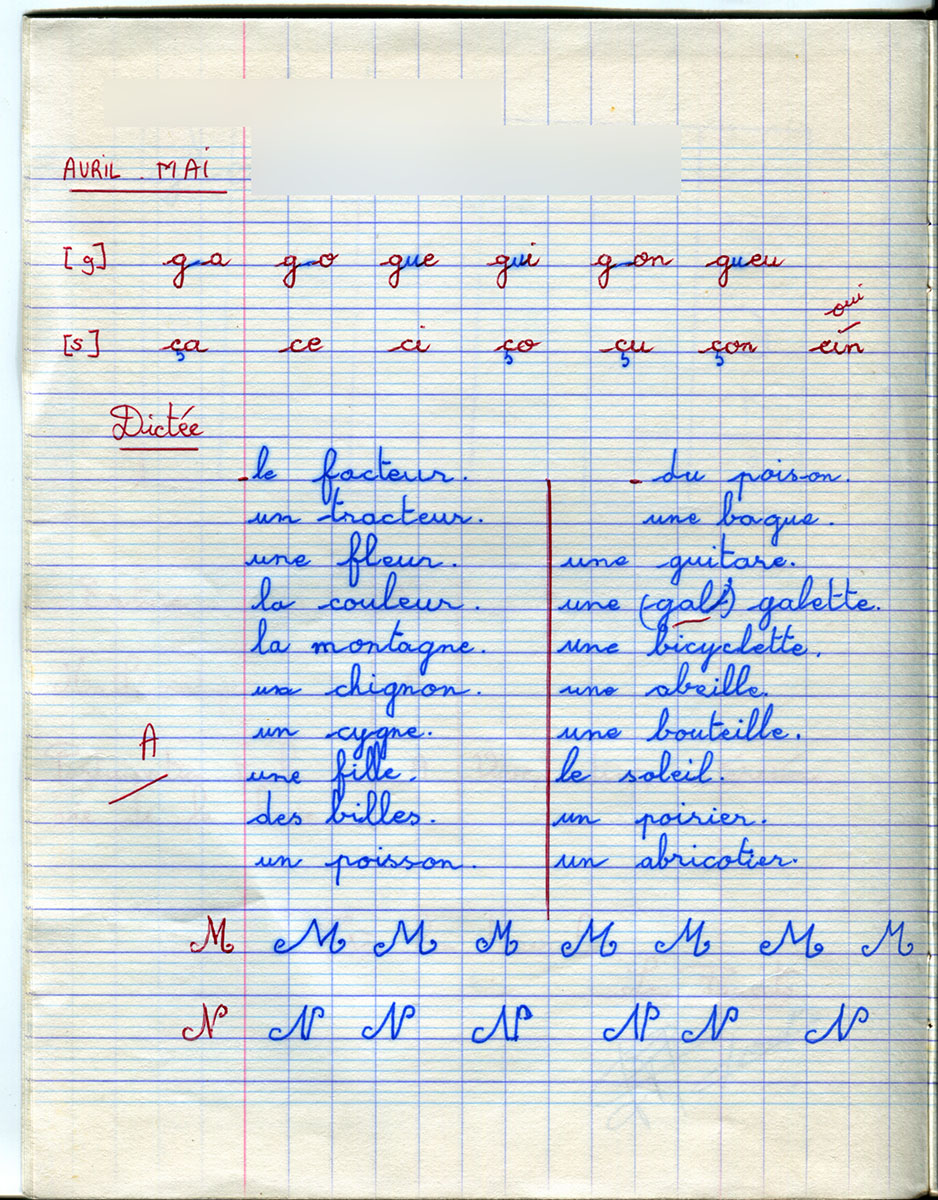 AVRIL - MAI
[g] ga go gue gui gon gueu
oui
[s] ça ce ci ço çu çon cin
Dictée
- le facteur.
un tracteur.
une fleur.
la couleur.
la montagne.
un chignon.
un cygne.
une fille.
des billes.
un poisson.
- du poison.
une bague.
une guitare.
une (gal) galette.
une bicyclette.
une abeille.
une bouteille.
le soleil.
un poirier.
un abricotier.
A
M M M M M M M M
N N N N N N N